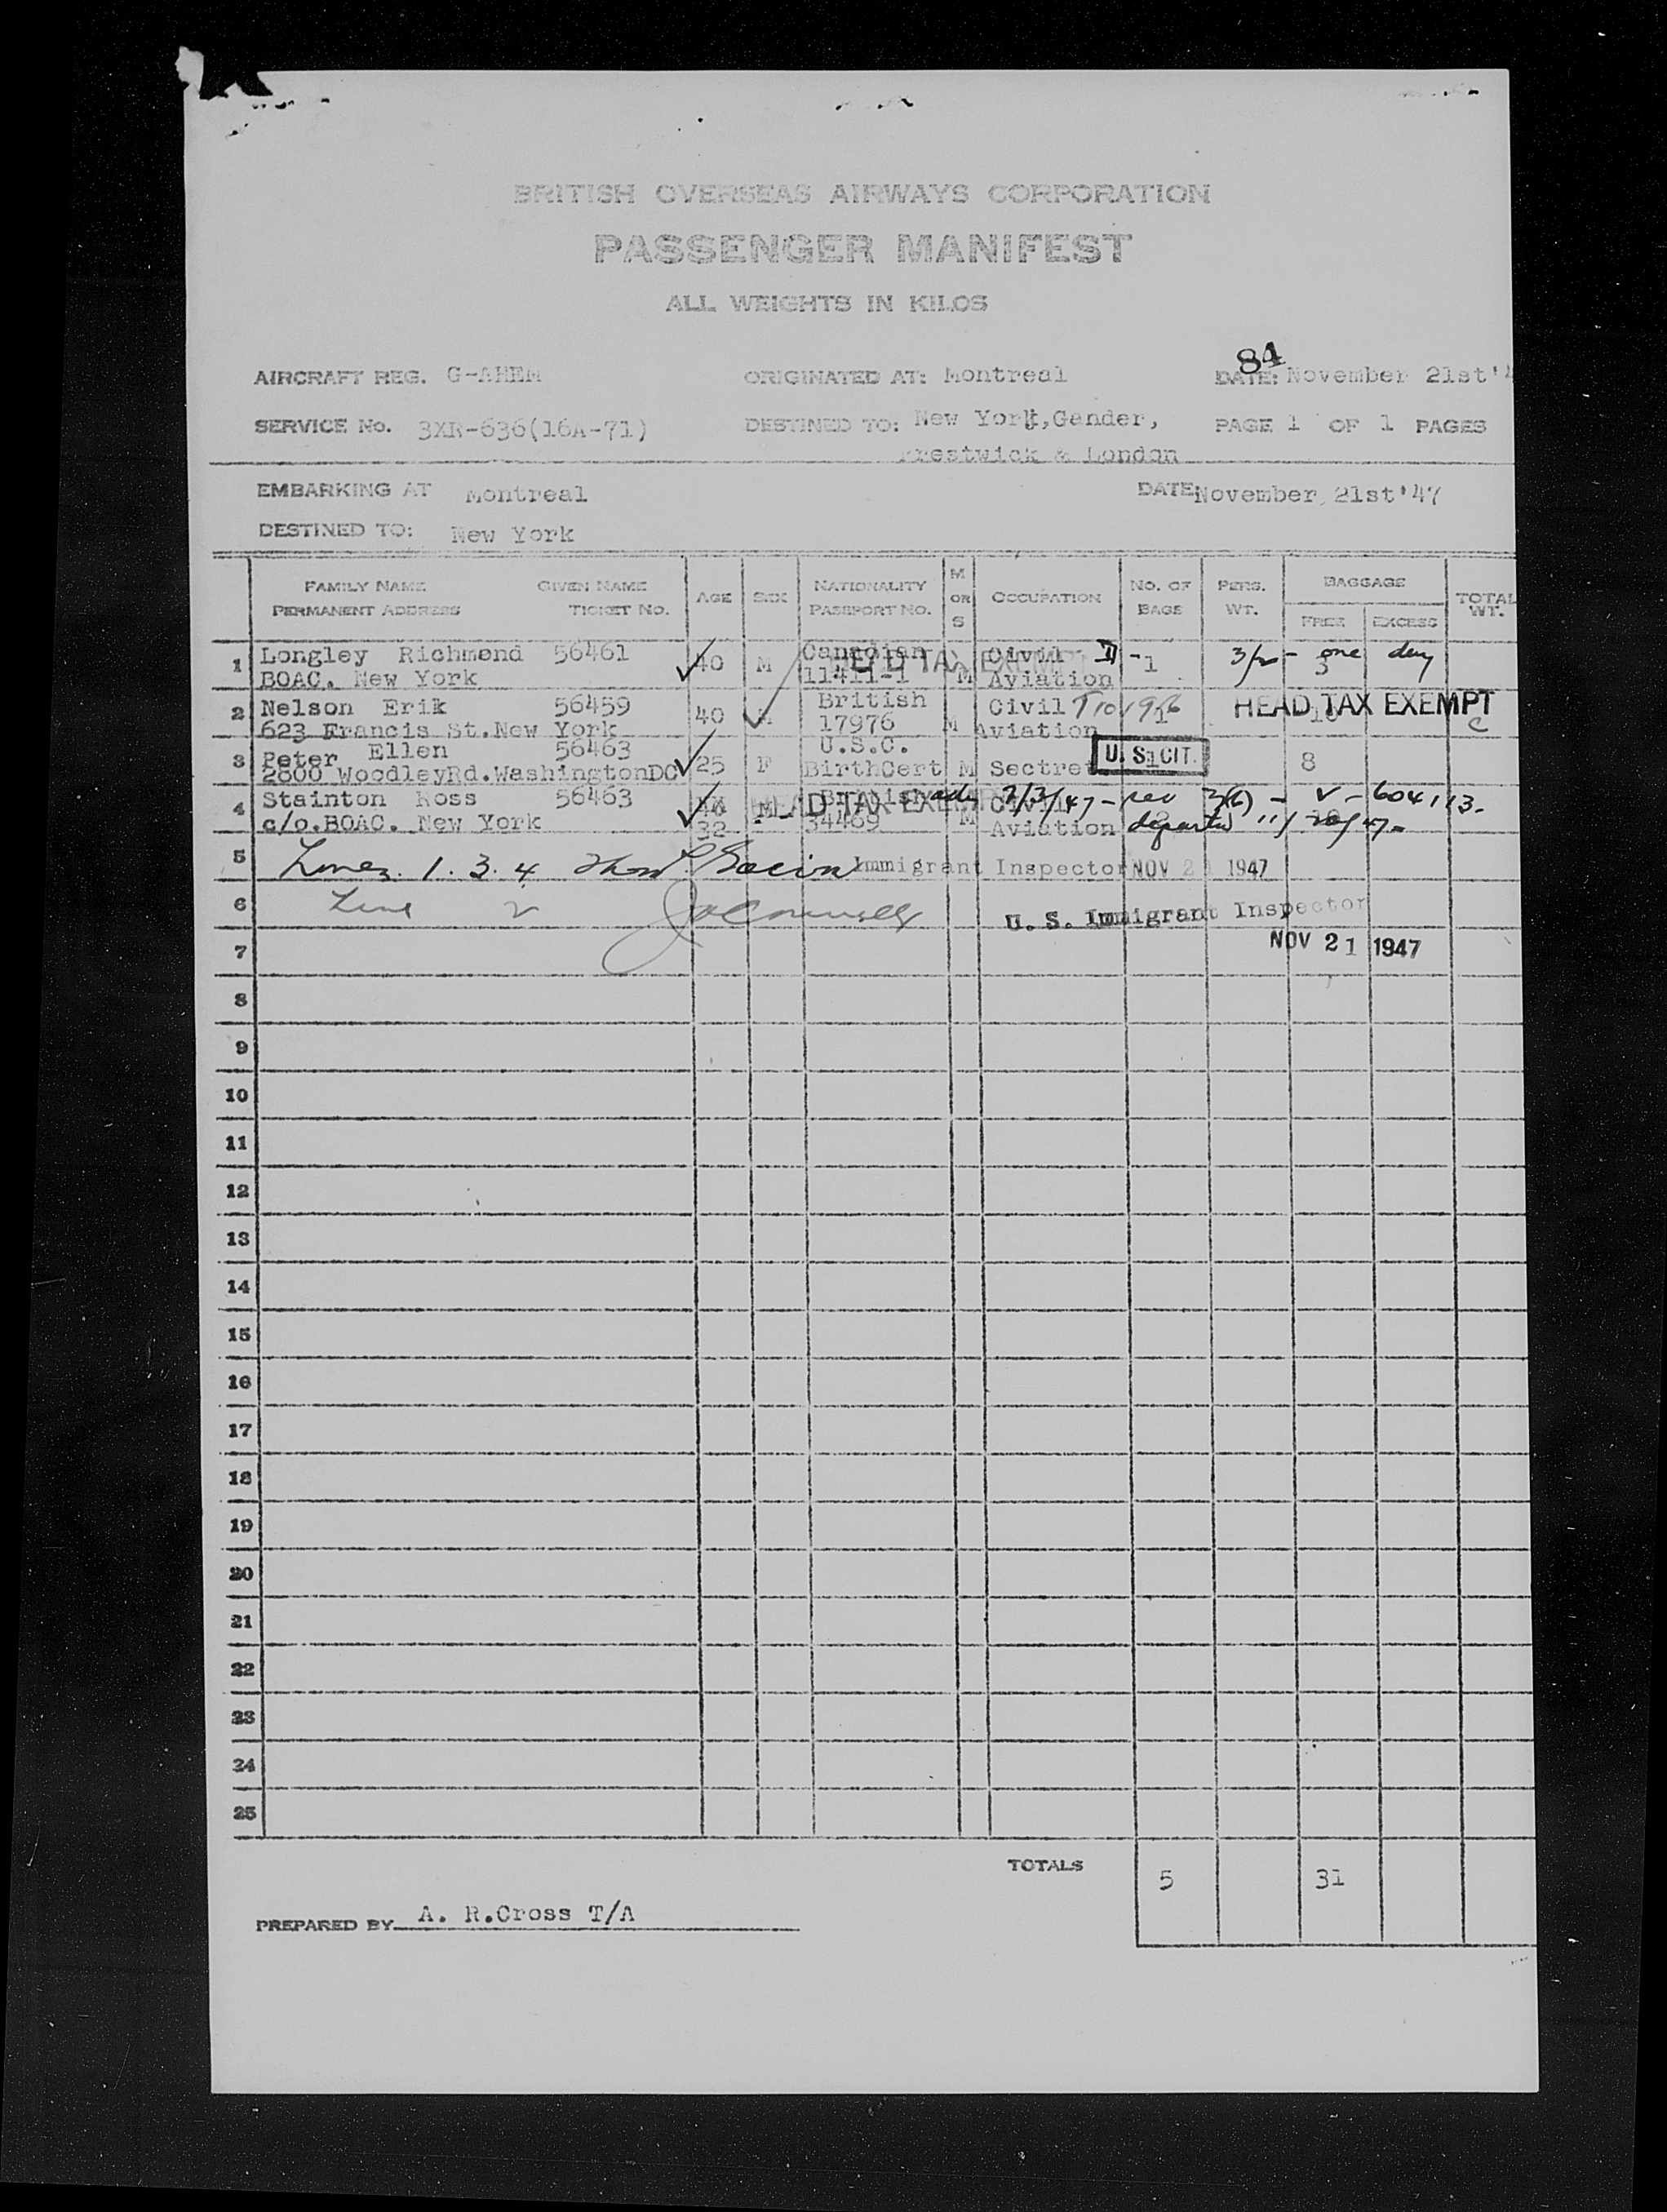 BRITISH OVERSEAS AIRWAYS CORPORATION
PASSENGER MANIFEST
ALL WEIGHTS IN KILOS
84
AIRCRAFT REG. G-AHEM ORIGINATED AT: Montreal DATE: November 21st '4
SERVICE No. 3XR-636(16A-71) DESTINED TO: New York, Gander, PAGE 1 OF 1 PAGES
Prestwick & London
EMBARKING AT Montreal DATE November 21st '47
DESTINED TO: New York
FAMILY NAME GIVEN NAME AGE SEX NATIONALITY M OR S OCCUPATION NO. OF BAGS PERS. WT. BAGGAGE TOTAL WT.
PERMANENT ADDRESS TICKET NO. PASSPORT NO. FREE EXCESS
1 Longley Richmond 56461 40 M Canadian HEAD TAX EXEMPT Civil 1 3/2 - one day
BOAC. New York 11411-1 M Aviation 3
2 Nelson Erik 56459 40 M British Civil 1 HEAD TAX EXEMPT
623 Francis St.New York 17976 M Aviation C
3 Peter Ellen 56463 25 F U.S.C. U.S. CIT. 1 8
2800 WoodleyRd.WashingtonDC BirthCert M Sectre
4 Stainton Ross 56463 M British HEAD TAX EXEMPT Civil 3(6) - V-604113-
c/o.BOAC. New York 32 34469 M Aviation departed
5 Lines. 1. 3. 4 Immigrant Inspector NOV 21 1947
6 Line 2 U. S. Immigrant Inspector
7 NOV 21 1947
8
9
10
11
12
13
14
15
16
17
18
19
20
21
22
23
24
25
TOTALS 5 31
PREPARED BY A. R.Cross T/A